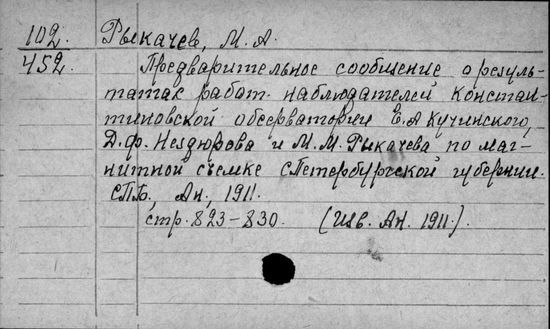 102. Рыкачев, М. А.
452. Предварительное сообщение о резуль-
татах работ наблюдателей Констан-
тиновской обсерватории Е. А. Кучинского,
Д. Ф. Нездюрова и М. М. Рыкачева по маг-
нитной съемке СПетербургской губернии.
СПБ, Ан., 1911.
стр. 823-830. (Изв. Ан. 1911.).